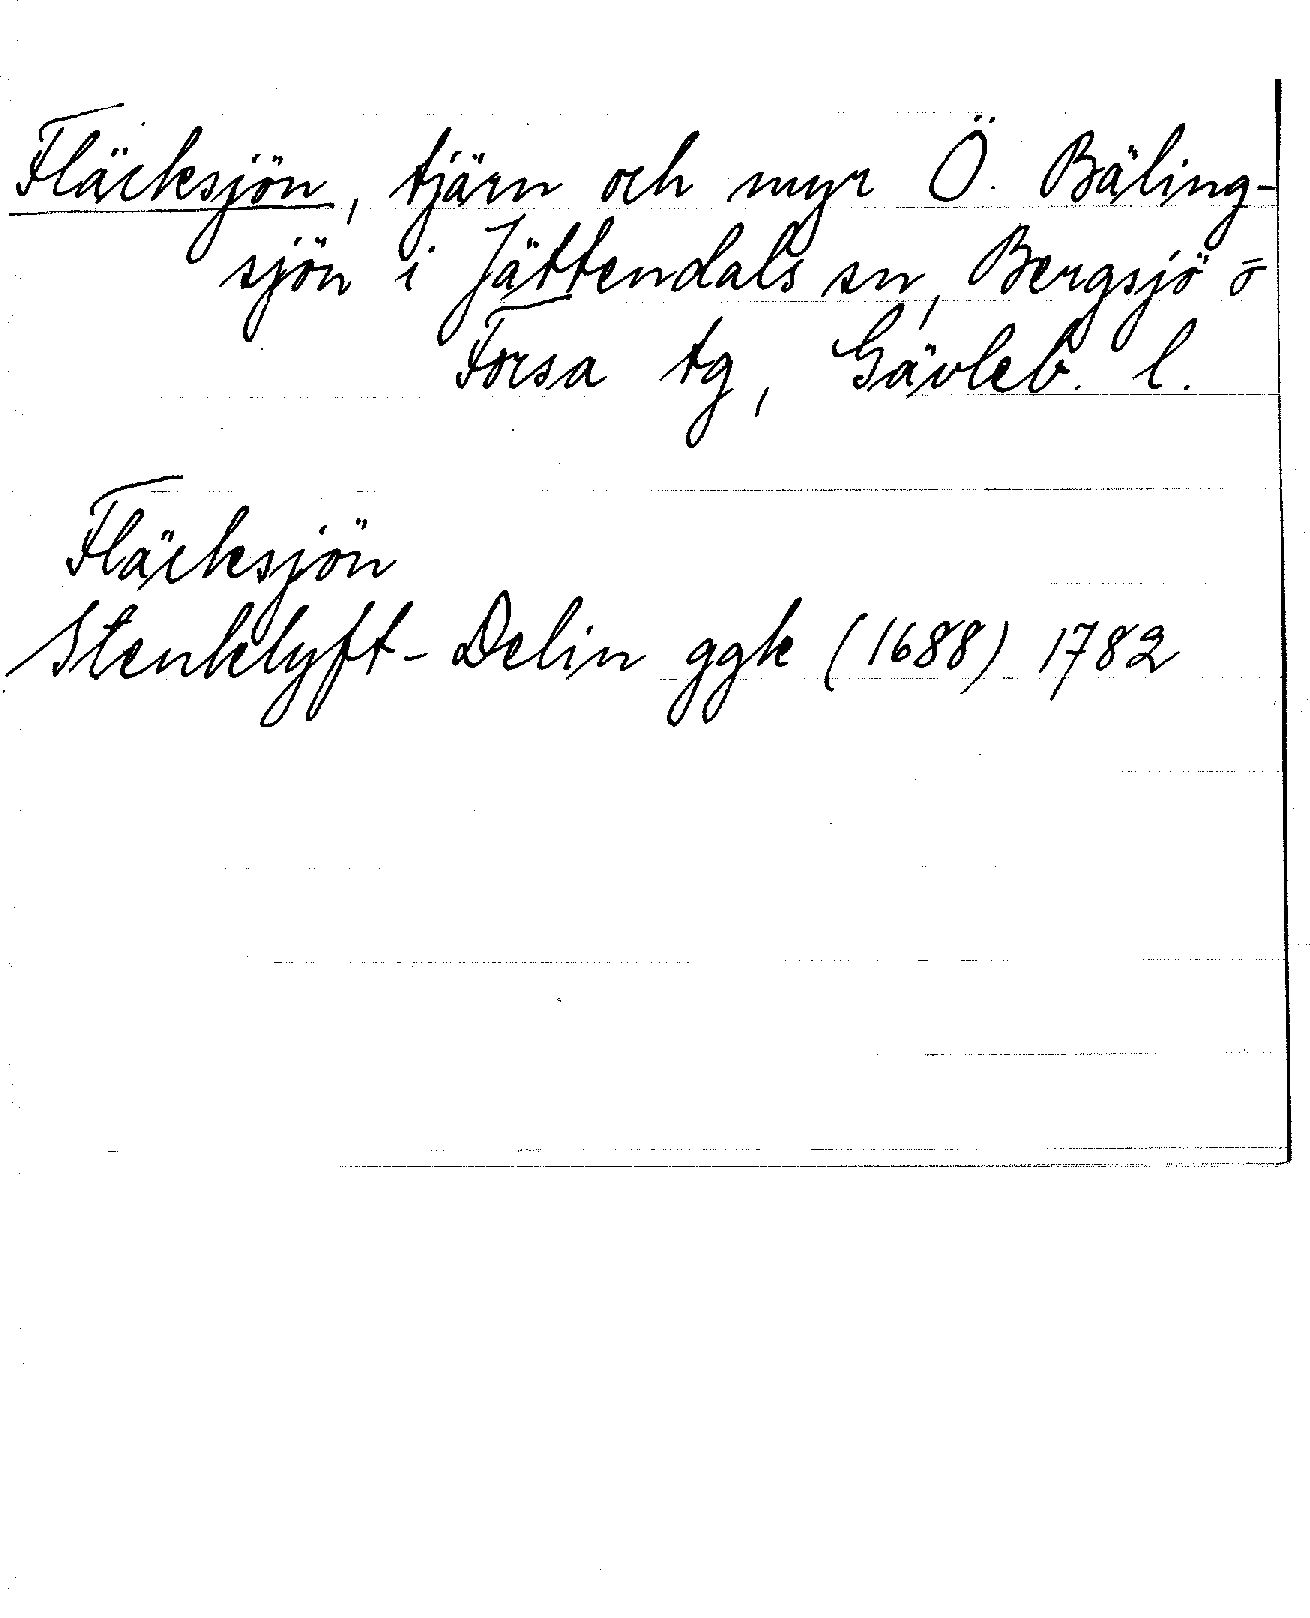 Fläcksjön, tjärn och myr Ö. Bäling-
sjön i Jättendals sn, Bergsjö o
Forsa tg, Gävleb. l.
Fläcksjön
Stenklyft-Delin ggk (1688) 1782